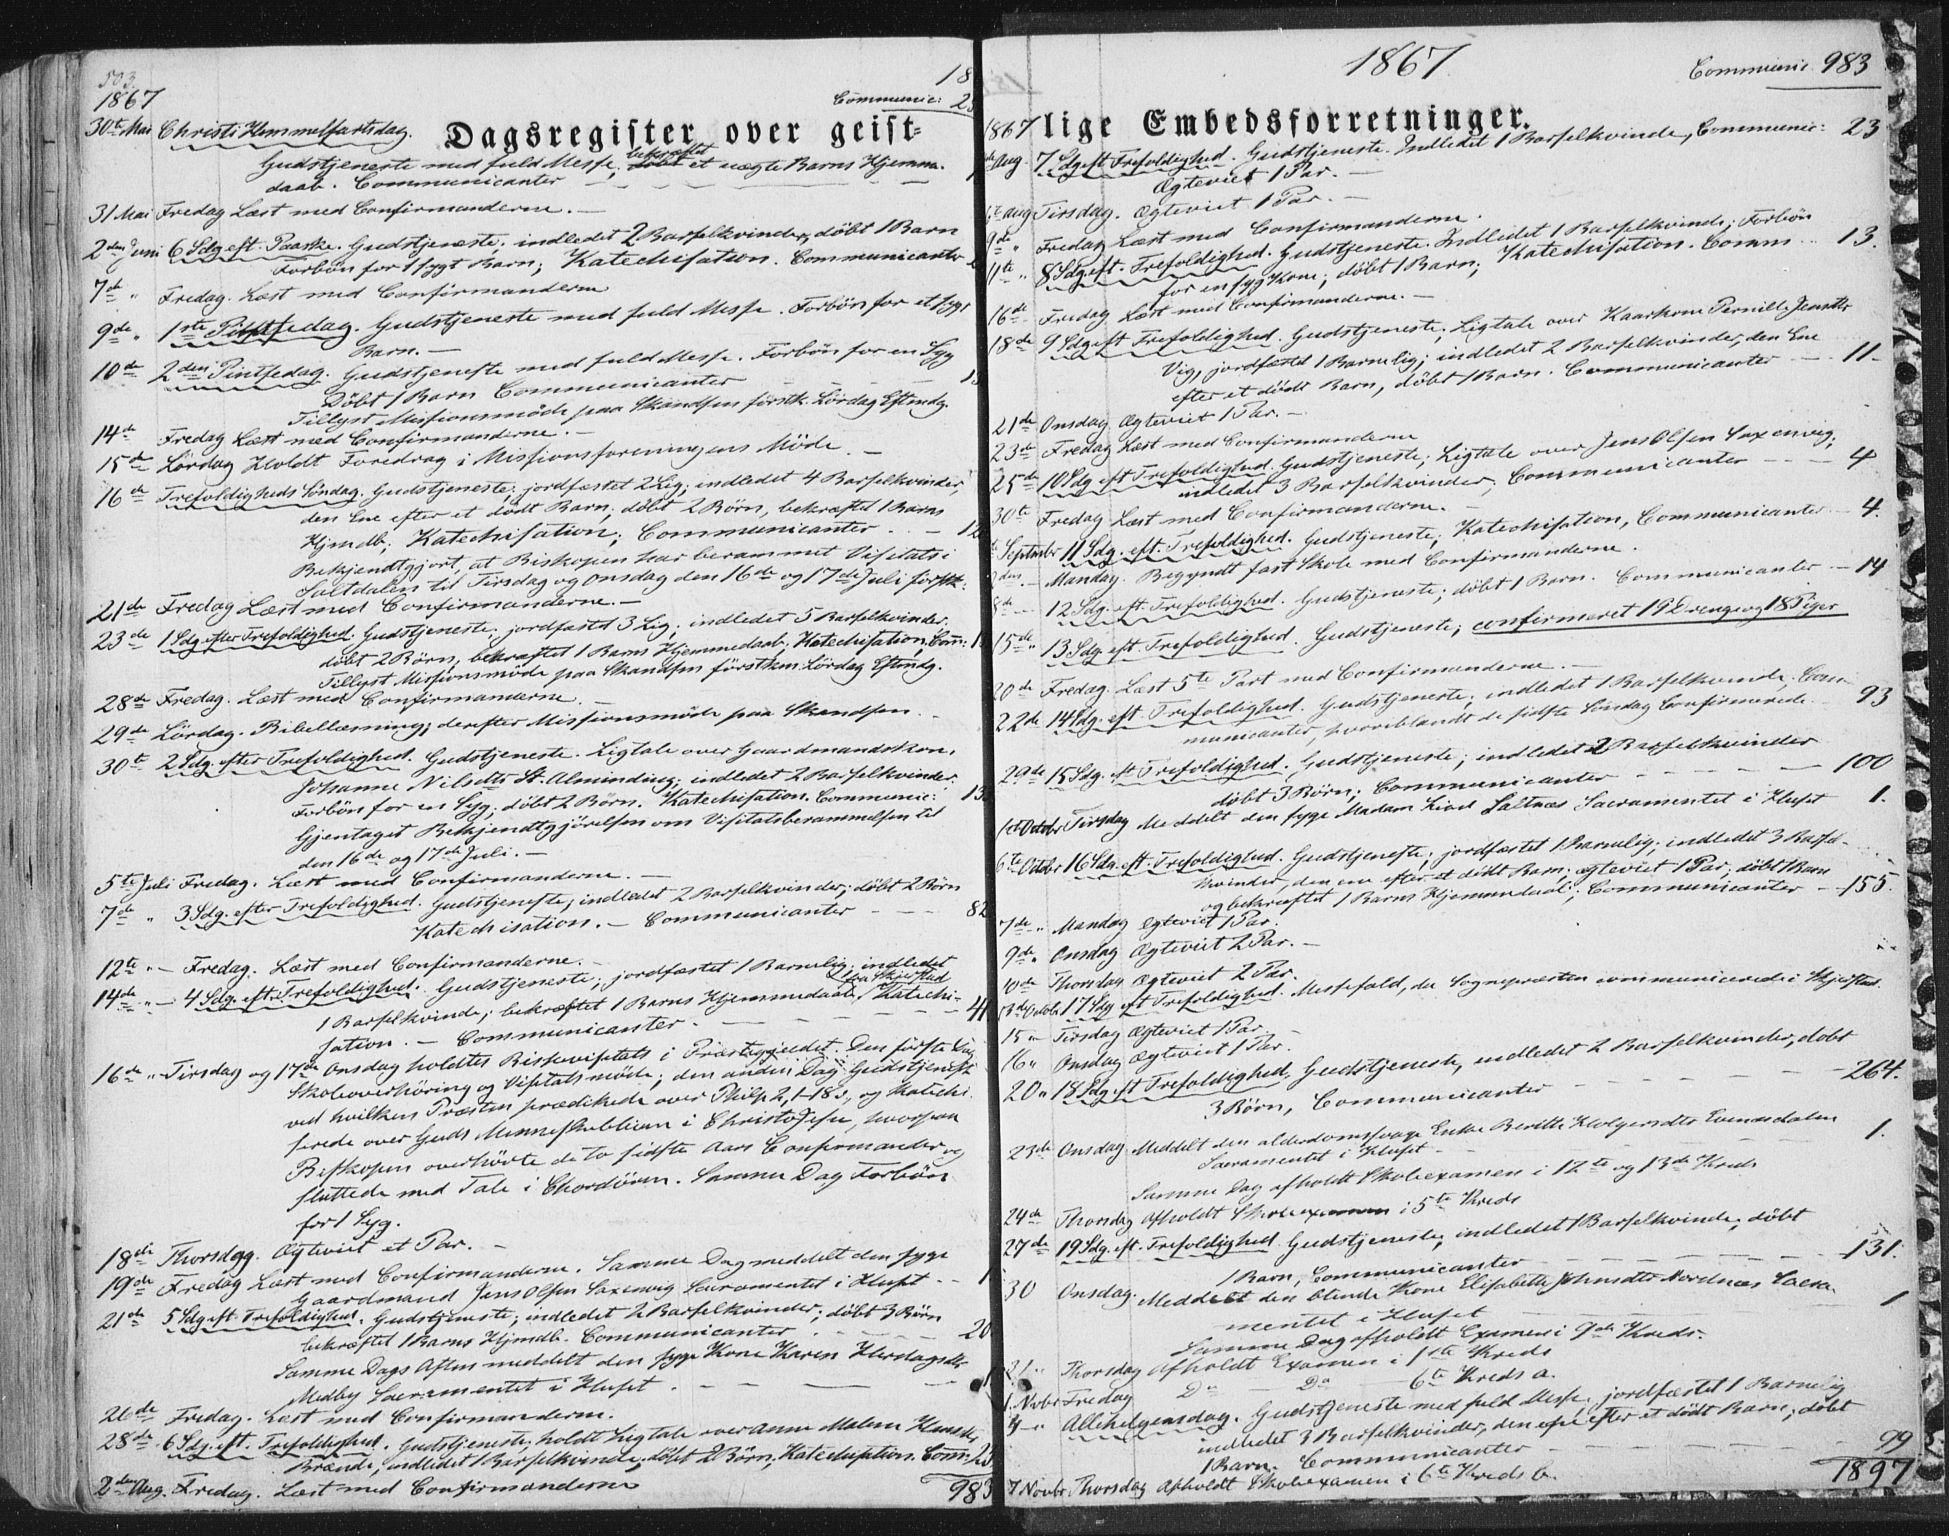 503.
1867
18
Communic: 2
Dagsregister over geist=
30te Mai Christi Himmelfartsdag.
Gudstjeneste med fuld Messe, bekræftet et uægte Barns Hjemme-
daab. Communicanter
31 Mai Fredag Læst med Confirmanderne. —
2den Juni 6 Sdg. eft. Paaske. Gudstjeneste. indledet 2 Barselkvinder, döbt 1 Barn
Forbön for 1 sygt Barn; Katechisation. Communicanter
7de " Fredag. Læst med Confirmanderne
9de " 1ste Pintsedag. Gudstjeneste med fuld Messe. Forbön for et sygt
Barn. —
10de 2den Pintsedag. Gudstjeneste med fuld Messe. Forbön for en Syg
Döbt 1 Barn Communicanter
Tillyst Missionsmöde paa Skandsen förstk. Lördag Eftmdg.
14de Fredag Læst med Confirmanderne. —
15de Lördag Holdt Foredrag i Missionsforeningens Möde. —
16de Trefoldigheds Söndag. Gudstjeneste; jordfæstet 2 Lig; indledet 4 Barselkvinder,
den Ene efter et dödt Barn; döbt 2 Börn, bekræftet 1 Barns
Hjmdb; Katechisation; Communicanter. — 12
Bekjendtgjort, at Biskopen har berammet Visitats i
Saltdalen til Tirsdag og Onsdag den 16de og 17de Juli förstk:
21de Fredag Læst med Confirmanderne. —
23de 1 Sdg efter Trefoldighed. Gudstjeneste. jordfæstet 3 Lig; indledet 5 Barselkvinder.
döbt 2 Börn; bekræftet 1 Barns Hjemmedaab. Katechisation, Com:
Tillyst Missionsmöde paa Skandsen förstkm. Lördag Eftmdg.
28de Fredag. Læst med Confirmanderne
29de Lördag. Bibellæsning; derefter Missionsmöde paa Skandsen.
30te 2 Sdg. efter Trefoldighed. Gudstjeneste. Ligtale over Gaardmandskon.
Johanne Nilsdtr St. Alminding; indledet 2 Barselkvinder.
Forbön for en Syg; döbt 2 Börn. Katechisation. Communic: 13
Gjentaget Bekjendtgjörelsen om Visitatsberammelsen til
den 16de og 17de Juli. —
5te Juli Fredag. Læst med Confirmanderne. —
7de " 3 Sdg. efter Trefoldighed. Gudstjeneste; indledet 2 Barselkvinder; döbt 2 Börn
Katechisation. — Communicanter — 82
12te " — Fredag. Læst med Confirmanderne. —
14de " — 4 Sdg. eft. Trefoldighed. Gudstjeneste; jordfæstet 1 Barnelig; indledet
1 Barselkvinde; bekræftet 1 Barns Hjemmedaab, Katechi-
sation. — Communicanter. — 41
16de " Tirsdag og 17de Onsdag holdtes Bispevisitats i Præstegjeldet. Den förste Dag
Skoleoverhöring og Visitatsmöde; den anden Dag Gudstjeneste
ved hvilken Præsten prædikede over Philp 2, 1-18, og Katechi-
serede over Guds Menneskeblivn i Christo Jesu, hvorpaa
Biskopen overhörte de to sidste Aars Confirmander og
sluttede med Tale i Chordören. Samme Dag Forbön
for 1 Syg.
18de Thorsdag. Ægteviet et Par. —
19de Fredag Læst med Confirmanderne. Samme Dag meddelt den syge
Gaardmand Jens Olsen Saxenvig Sacramentet i Huset. — 1
21de 5 Sdg. eft. Trefoldighed. Gudstjeneste; indledet 2 Barselkvinder; döbt 3 Börn
bekræftet 1 Barns Hjmdb. Communicanter. — 20
Samme Dags Aften meddelt den syge Kone Karen Hersdagsdtr
Medby Sacramentet i Huset. — 1
26de Fredag. Læst med Confirmanderne.
28de 6 Sdg. eft. Trefoldighed. Gudstjeneste; holdt Ligtale over Anne Malene Hansdtr
Brænde, indledet 1 Barselkvinde; döbt 2 Börn; Katechisation. Com: 2
2den Aug. Fredag. Læst med Confirmanderne
983
1867
Communic. 983
1867 lige Embedsforretninger.
Aug. 7 Sdg eft Trefoldighed. Gudstjeneste. Indledet 1 Barselkvinde, Communic: 23
Ægteviet 1 Par. —
6te Aug Tirsdag. Ægteviet 1 Par. —
9de " Fredag Læst med Confirmanderne.
11te " 8 Sdg eft. Trefoldighed. Gudstjeneste. Indledet 1 Barselkvinde; Forbön
for en syg Kone; döbt 1 Barn; Katechisation. Comm — 13.
16de Fredag Læst med Confirmanderne. —
18de 9 Sdg eft Trefoldighed. Gudstjeneste; Ligtale over Kaarkone Pernille Jensdtr
Vig, jordfæstet 1 Barnelig; indledet 2 Barselkvinder, den Ene
efter et dödt Barn, döbt 1 Barn. Communicanter — 11.
21de Onsdag Ægteviet 1 Par. —
23de Fredag Læst med Confirmanderne
25de 10 Sdg eft Trefoldighed. Gudstjeneste; Ligtale over Jens Olsen Saxenvig;
indledet 3 Barselkvinder, Communicanter — 4
30te Fredag Læst med Confirmanderne.
Septmbr 11 Sdg. eft. Trefoldighed. Gudstjeneste; Katechisation, Communicanter — 4.
Mandag. Begyndt fast Skole med Confirmanderne.
8de 12 Sdg. eft. Trefoldighed. Gudstjeneste; döbt 1 Barn. Communicanter — 14
15de " 13 Sdg. eft. Trefoldighed. Gudstjeneste; confirmeret 19 Drenge og 18 Piger
20de Fredag. Læst 5te Part med Confirmanderne. —
22de 14 Sdg. eft. Trefoldighed. Gudstjeneste; indledet 1 Barselkvinde, Com-
municanter, hvoriblandt de sidste Söndag Confirmerede. 93
29de 15 Sdg. eft Trefoldighed. Gudstjeneste; indledet 2 Barselkvinder
döbt 3 Börn; Communicanter — 100
1ste Octobr Tirsdag Meddelt den syge Madam Saltnæs Sacramentet i Huset 1.
6te Octobr 16 Sdg. eft. Trefoldighed. Gudstjeneste; jordfæstet 1 Barnelig; indledet 3 Barsel-
kvinder, den ene efter et dödt Barn; ægteviet 1 Par; döbt 1 Barn
og bekræftet 1 Barns Hjemmedaab; Communicanter — 155.
7de " Mandag Ægteviet 1 Par.
9de " Onsdag Ægteviet 2 Par. —
10de Thorsdag Ægteviet 2 Par.
13de Octobr 17 Sdg eft Trefoldighed. Messefald, da Sognepræsten communicerede i Skjerstad.
15 " Tirsdag Ægteviet 1 Par. —
16 " Onsdag Ægteviet 1 Par.
20 " 18 Sdg. eft Trefoldighed. Gudstjeneste, indledet 2 Barselkvinder, döbt
3 Börn, Communicanter — 264.
23de Onsdag Meddelt den alderdomssvage Enke Berith Holgersdtr Evensdalen
Sacramentet i Huset — 1.
Samme Dag afholdt Skoleexamen i 12te og 13de Kreds
24de Thorsdag Afholdt Skoleexamen i 5te Kreds
27de 19 Sdg. eft. Trefoldighed. Gudstjeneste, indledet 1 Barselkvinde; döbt
1 Barn, Communicanter — 131.
30 Onsdag. Meddelt den blinde Kone Elisabeth Johnsdtr Nordnæs Sacra-
mentet i Huset — 1
Samme Dag afholdt Examen i 9de Kreds.
31 " Thorsdag Afholdt Examen i 1ste Kreds
1 Novbr Fredag Do — Do — 6te Kreds a.
Allehelgensdag. Gudstjeneste med fuld Messe; jordfæstet 1 Barnelig
indledet 3 Barselkvinder, den ene efter et dödt Barn; döbt
1 Barn. Communicanter — 99
7 Novbr Thorsdag Afholdt Skoleexamen i 6te Kreds b.
1897